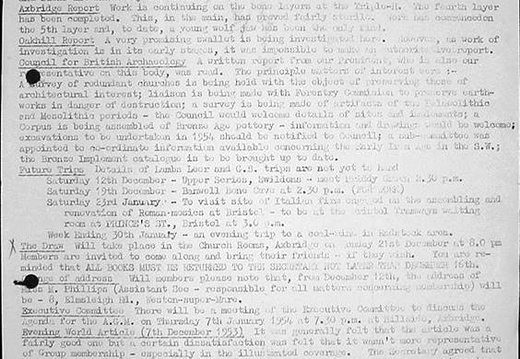 Axbridge Report Work is continuing on the bone layers at the Triple-H. The fourth layer
has been completed. This, in the main, has proved fairly sterile. Work has commenced on
the 5th layer and, to date, a young wolf jaw has been the only find.
Oakhill Report A very promising swallet is being investigated here. However, as work of
investigation is in its early stages, it was impossible to make an authoritative report.
Council for British Archaeology A written report from our President, who is also our
representative on this body, was read. The principle matters of interest were :-
A survey of redundant churches is being held with the object of preserving those of
architectural interest; liaison is being made with Forestry Commission to preserve earth-
works in danger of destruction; a survey is being made of artifacts of the Palaeolithic
and Mesolithic periods - the Council would welcome details of sites and implements; a
Corpus is being assembled of Bronze Age pottery - information and drawings would be welcome;
excavations to be undertaken in 1954 should be notified to Council; a sub-committee was
appointed to co-ordinate information available concerning the Early Iron Age in the S.W.;
the Bronze Implement catalogue is to be brought up to date.
Future Trips Details of Lambs Leer and G.B. trips are not yet to hand
Saturday 12th December - Upper Series, Swildons - meet Priddy Green 2.30 p.m.
Saturday 19th December - Banwell Bone Cave at 2.30 p.m. (FOR WORK)
Saturday 23rd January - To visit site of Italian firm engaged on the assembling and
renovation of Roman mosics at Bristol - to be at the Bristol Tramways waiting
room at PRINCE'S ST., Bristol at 3.0 p.m.
Week Ending 30th January - an evening trip to a coal-mine in Radstock area.
X The Draw Will take place in the Church Rooms, Axbridge on Sunday 21st December at 8.0 pm
Members are invited to come along and bring their friends - if they wish. You are re-
minded that ALL BOOKS MUST BE RETURNED TO THE SECRETARY NOT LATER THAN DECEMBER 16th.
Change of address Will members please note that, from December 12th, the address of
Miss M. Phillips (Assistant Sec - responsible for all matters concerning membership) will
be - 8, Elmsleigh Rd., Weston-super-Mare.
Executive Committee There will be a meeting of the Executive Committee to discuss the
Agenda for the A.G.M. on Thursday 7th January 1954 at 7.30 p.m. at Hillside, Axbridge.
Evening World Article (7th December 1953) It was generally felt that the article was a
fairly good one but a certain dissatisfaction was felt that it wasn't more representative
of Group membership - especially in the illustrated coverage. The Secretary agreed that